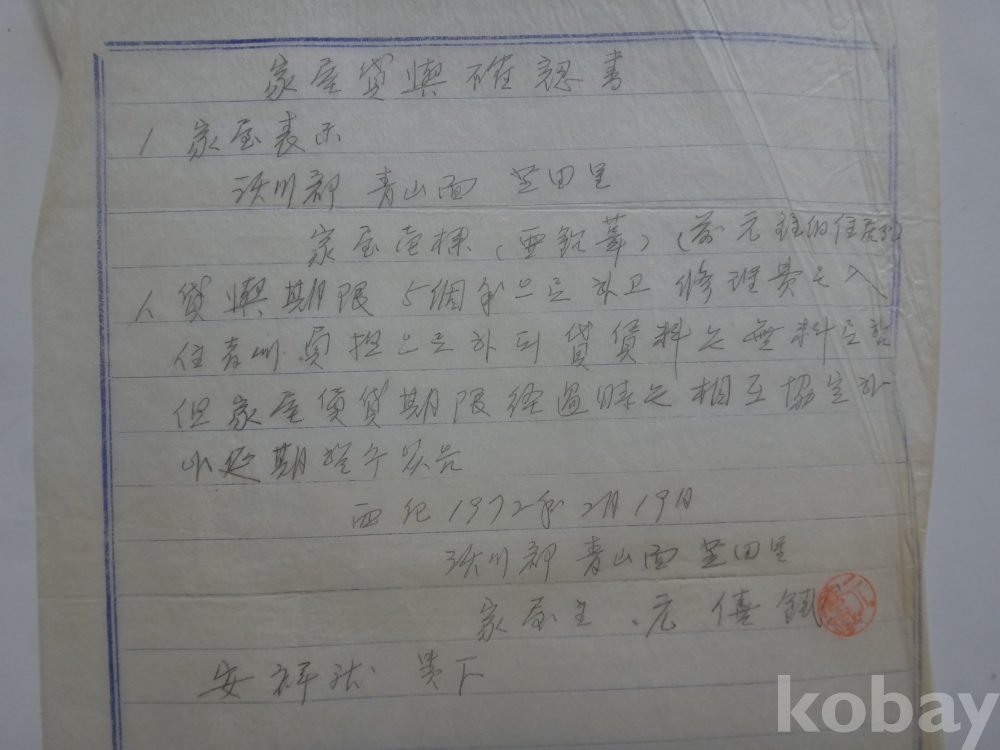 家屋貸與確認書
1 家屋表示
沃川郡 靑山面 芝田里
家屋壱棟 (亜鉛葺) (前 元 住宅
1. 貸與期限 5個年으로 하고 修理費는 入
住者 負担으로 하되 賃貸料는 無料로 함
但 家屋賃貸期限 経過時는 相互協定하
야 延期할 수 있음
西紀 1972年 2月 19日
沃川郡 靑山面 芝田里
家屋主 元
安 貴下
kobay